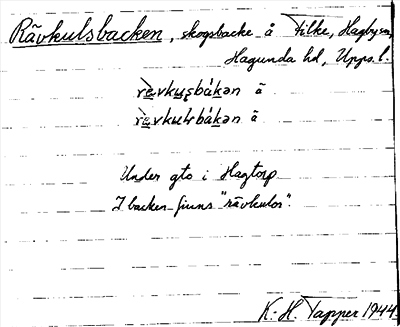 Rävkulsbacken, skogsbacke å Filke, Hagby sn,
Hagunda hd, Upps. l.
rèvku̱ʂbákən ä
rèvkulsbákən ä
Under gto i Hagtorp
I backen finns "rävkulor".
K.-H. Tapper 1944.